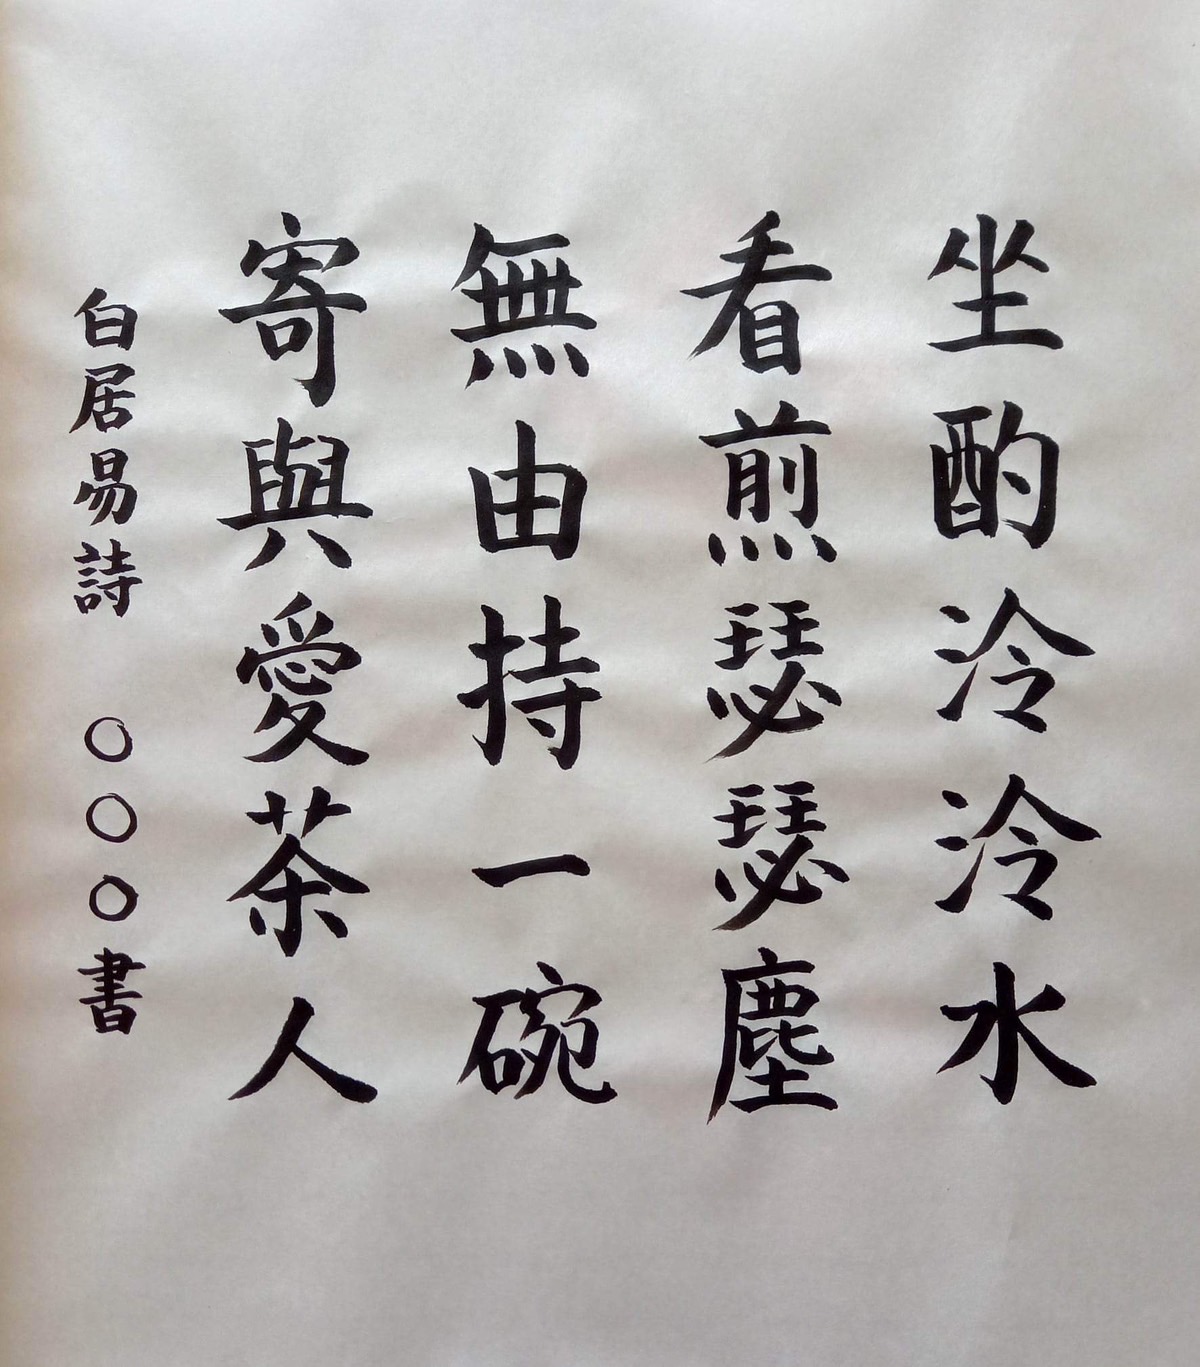 坐酌泠泠水
看煎瑟瑟塵
無由持一碗
寄與愛茶人
白居易詩 〇〇〇書